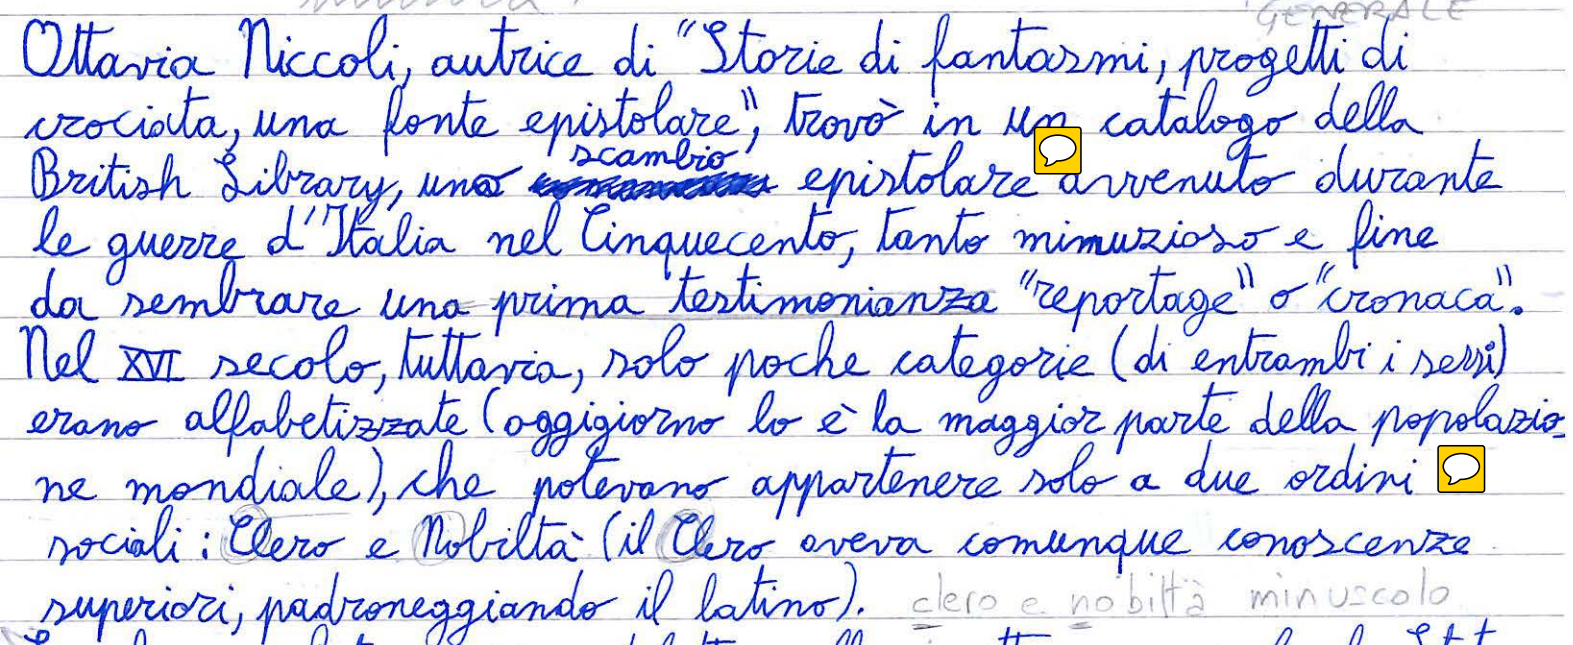 GENERALE
Ottavia Niccoli, autrice di "Storie di fantasmi, progetti di
crociata, una fonte epistolare", trovò in un catalogo della
British Library, uno scambio epistolare avvenuto durante
le guerre d'Italia nel Cinquecento, tanto minuzioso e fine
da sembrare una prima testimonianza "reportage" o "cronaca".
Nel XVI secolo, tuttavia, solo poche categorie (di entrambi i sessi)
erano alfabetizzate (oggigiorno lo è la maggior parte della popolazio-
ne mondiale), che potevano appartenere solo a due ordini
sociali: Clero e Nobiltà (il Clero aveva comunque conoscenze
superiori, padroneggiando il latino). clero e nobiltà minuscolo